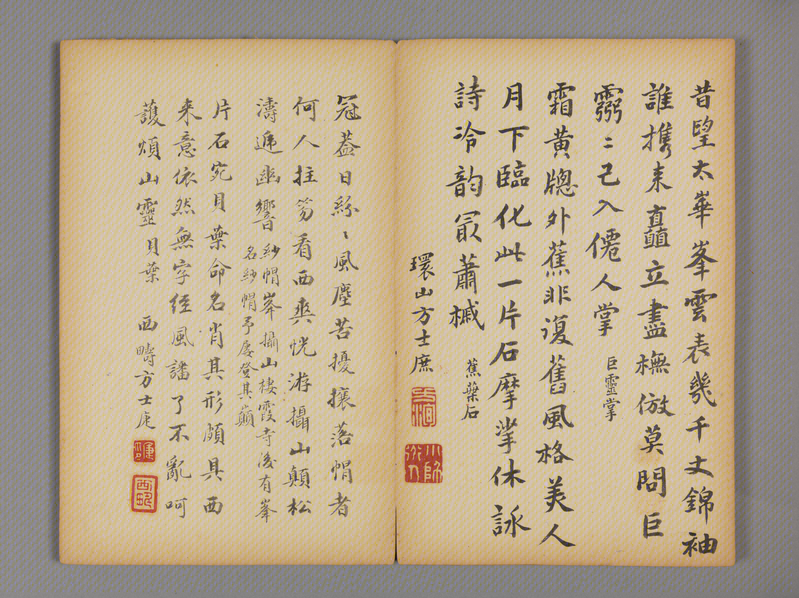 昔望太華峯雲表幾千丈錦袖
誰携來直立盡橅倣莫問巨
靈已入僊人掌 巨靈掌
霜黃牕外蕉非復舊風格美人
月下臨化此一片石摩挲休詠
詩冷韵最蕭槭 蕉葉石
環山方士庶
冠蓋日紛〻風塵苦擾攘落帽者
何人拄笏看西爽恍游攝山顛松
濤遞幽響 紗帽峯 攝山棲霞寺後有峯
名紗帽予屢登其巔
片石宛貝葉命名肖其形頗具西
来意依然無字經風譒了不亂呵
護煩山靈 貝葉 西疇方士庹
西疇